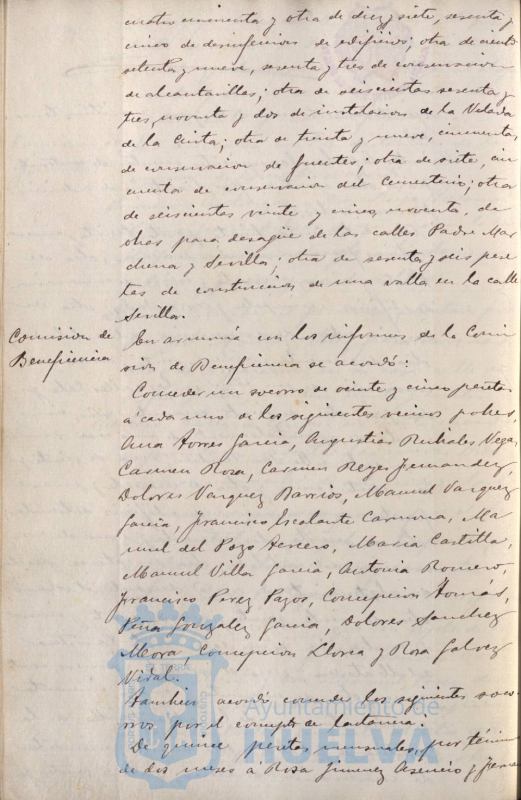 cuatro cincuenta y otra de diez y siete, sesenta y
cinco de desinfeccion de edificios; otra de ciento
setenta y nueve, sesenta y tres de conservacion
de alcantarillas; otra de seiscientas sesenta y
tres, noventa y dos de instalacion de la Velada
de la Cinta; otra de treinta y nueve, cincuenta
de conservacion de fuentes; otra de siete, cin
cuenta de conservacion del Cementerio; otra
de seiscientas veinte y cinco, noventa, de
obras para desagüe de las calles Padre Mar
chena y Sevilla; otra de sesenta y seis pese
tas de construccion de una valla en la calle
Sevilla.
Comision de
Beneficencia
En armonía con los informes de la Comi
sion de Beneficencia se acordó:
Conceder un socorro de veinte y cinco pesetas
á cada uno de los siguientes vecinos pobres,
Ana Torres Garcia, Angustias Rubiales Vega,
Carmen Rosa, Carmen Reyes Fernandez,
Dolores Vazquez Barrios, Manuel Vazquez
Garcia, Francisco Escalante Carmona, Ma
nuel del Pozo Tercero, Maria Castilla,
Manuel Villa Garcia, Antonia Romero,
Francisco Perez Pazos, Concepcion Tomás,
Peña Gonzalez Garcia, Dolores Sanchez
Mora, Concepcion Llorca y Rosa Galvez
Vidal.
Tambien acordó conceder los siguientes soco-
rros por el concepto de lactancia:
De quince pesetas mensuales, por término
de dos meses á Rosa Jimenez Asencio y
Ayuntamiento de
HUELVA